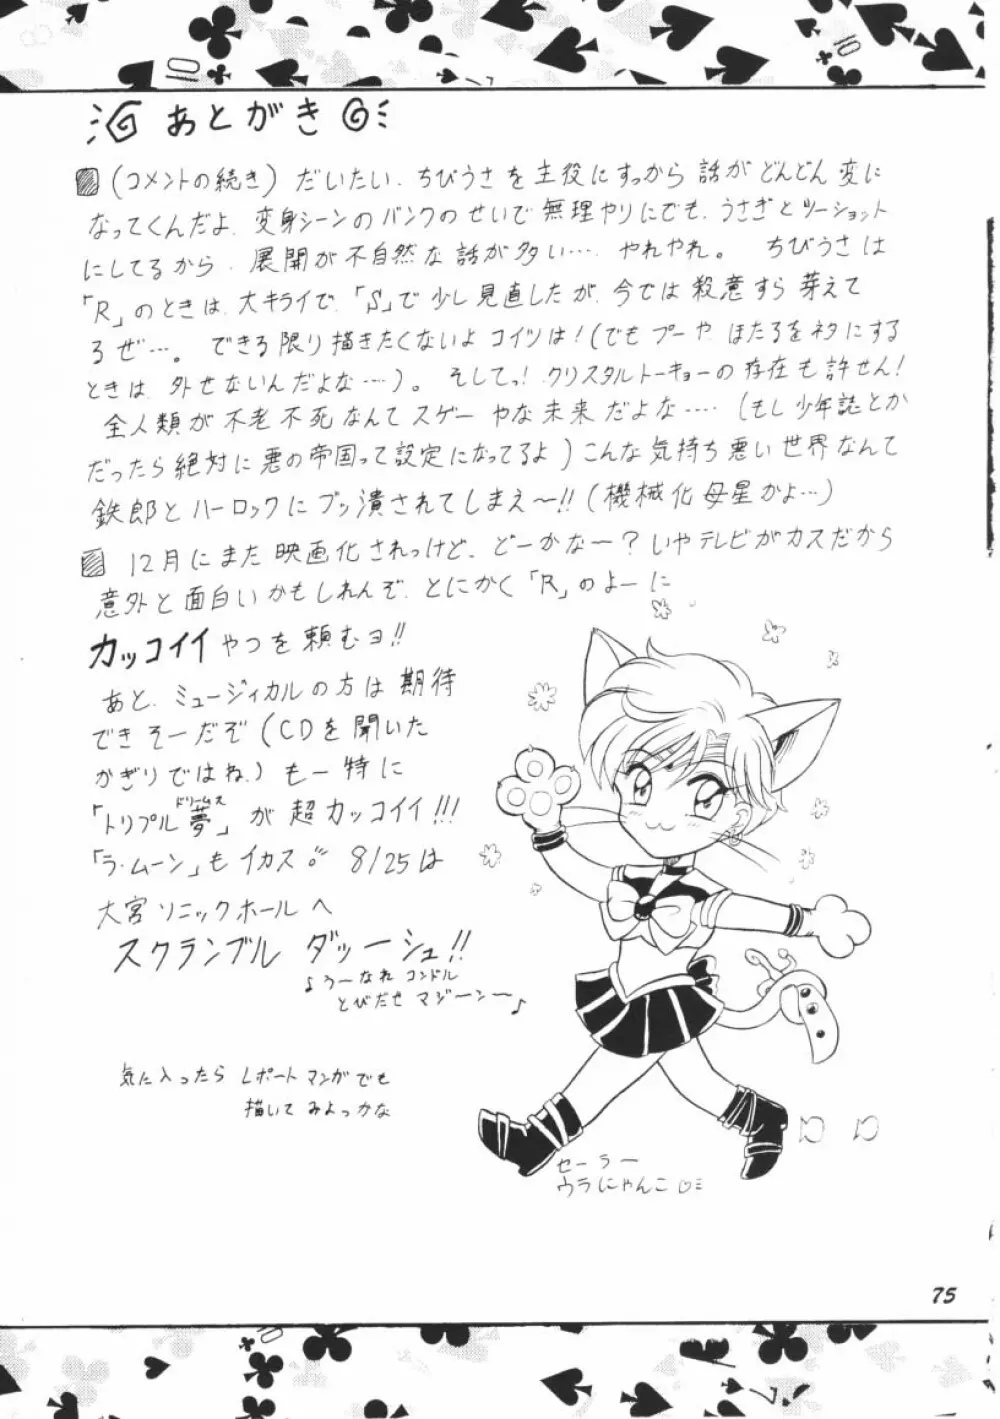 あとがき
(コメントの続き) だいたい、ちびうさを主役にすっから話がどんどん変に
なってくんだよ、変身シーンのバンクのせいで無理やりにでも、うさぎとツーショット
にしてるから、展開が不自然な話が多い…、やれやれ。 ちびうさは
「R」のときは、大キライで、「S」で少し見直したが、今では殺意すら芽えて
るぜ…。 できる限り描きたくないよコイツは!(でもプーや ほたるをネタにする
ときは、外せないんだよな…)。 そしてっ!クリスタルトーキョーの存在も許せん!
全人類が不老不死なんてスゲーやな未来だよな…(もし少年誌とか
だったら絶対に悪の帝国って設定になってるよ)こんな気持ち悪い世界なんて
鉄郎とハーロックにブッ潰されてしまえ〜!!(機械化母星かよ…)
12月にまた映画化されっけど、どーかな〜?いやテレビがカスだから
意外と面白いかもしれんぞ、とにかく「R」のよーに
カッコイイやつを頼むヨ!!
あと、ミュージィカルの方は期待
できそーだぞ(CDを聞いた
かぎりではね、)もー特に
「トリプル夢」が超カッコイイ!!!
ドリームス
「ラ・ムーン」もイカス 8/25は
大宮ソニックホールへ
スクランブル ダッーシュ!!
♪うーなれ コンドル
とびだせ マジーン〜♪
気に入ったら レポートマンガでも
描いて みよっかな
セーラー
ウラにゃんこ
75
10
10